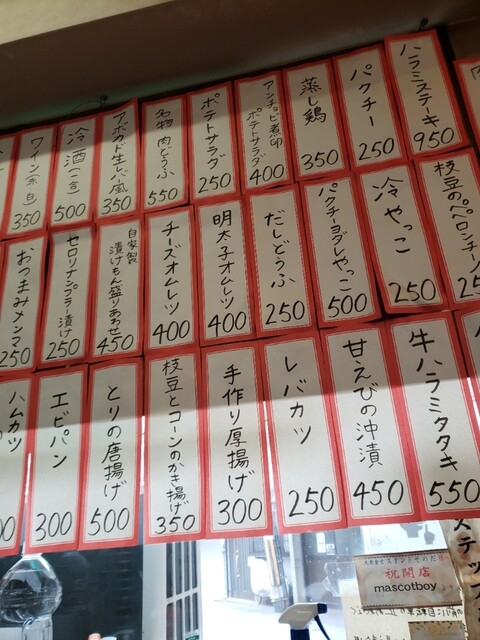 ハラミステーキ
950
パクチー
250
蒸し鶏
350
アンチョビ煮卵
ポテトサラダ
400
ポテトサラダ
250
名物 肉どうふ
550
アボカド生レバ風
350
冷酒(一合)
500
ワイン(赤・白)
350
枝豆のペペロンチーノ
25
冷やっこ
250
パクチーヨダレやっこ
500
だしどうふ
250
明太子オムレツ
400
チーズオムレツ
400
自家製
漬けもん盛りあわせ
450
セロリナンプラー漬け
250
おつまみメンマ
250
牛ハラミタタキ
550
甘えびの沖漬
450
レバカツ
250
手作り厚揚げ
300
枝豆とコーンのかき揚げ
350
とりの唐揚げ
500
エビパン
300
ハムカツ
00
祝開店
mascotboy
ステップ